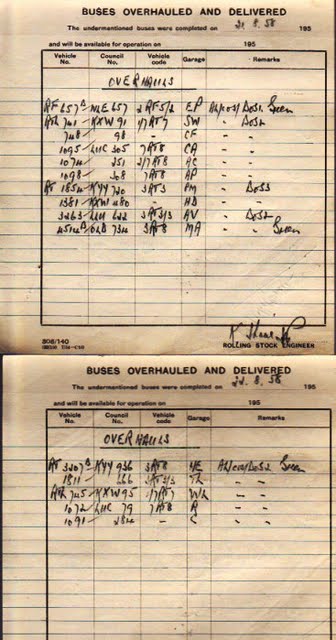 BUSES OVERHAULED AND DELIVERED
The undermentioned buses were completed on 21.8.58 195
and will be available for operation on 195
Vehicle No. Council No. Vehicle code Garage Remarks
OVERHAULS
RF 657 NLE 657 2RF5/2 EP Green
RTL 741 KXW 91 1/7RT7 SW " DoS2
748 98 " CF "
1095 LUC 305 7RT8 CA " "
1074 251 2/7RT8 AC " "
1098 308 7RT8 AP " "
RT 1854 KYY 720 3RT3 PM " DoS3
1381 KXW 480 " HD " "
3263 LLU 622 3RT3/3 AV " DoS2
4512 OLD 732 3RT8 MA " " Green
ROLLING STOCK ENGINEER
808/140
BUSES OVERHAULED AND DELIVERED
The undermentioned buses were completed on 22.8.58 195
and will be available for operation on 195
Vehicle No. Council No. Vehicle code Garage Remarks
OVERHAULS
RT 3207 KYY 936 3RT8 Green
1811 666 3RT3/3 TL " "
RTL 745 KXW 95 1/7RT7 " "
1072 LUC 79 7RT8 R " "
1091 284 " C " "